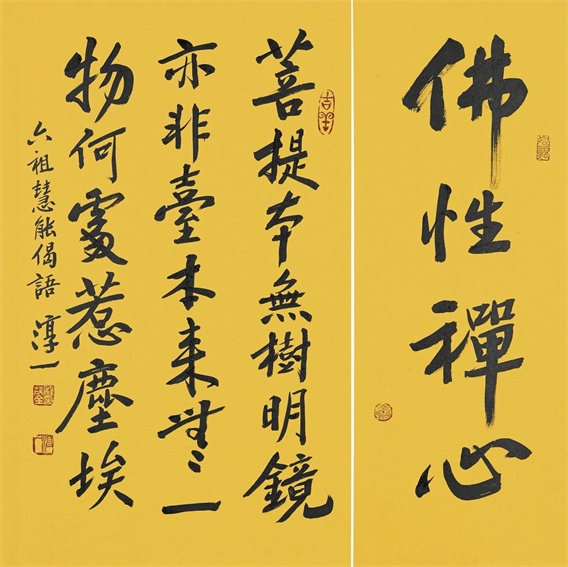 佛性禪心
吉羊
菩提本無樹明鏡
亦非臺本来無一
物何處惹塵埃
六祖慧能偈語 淳一